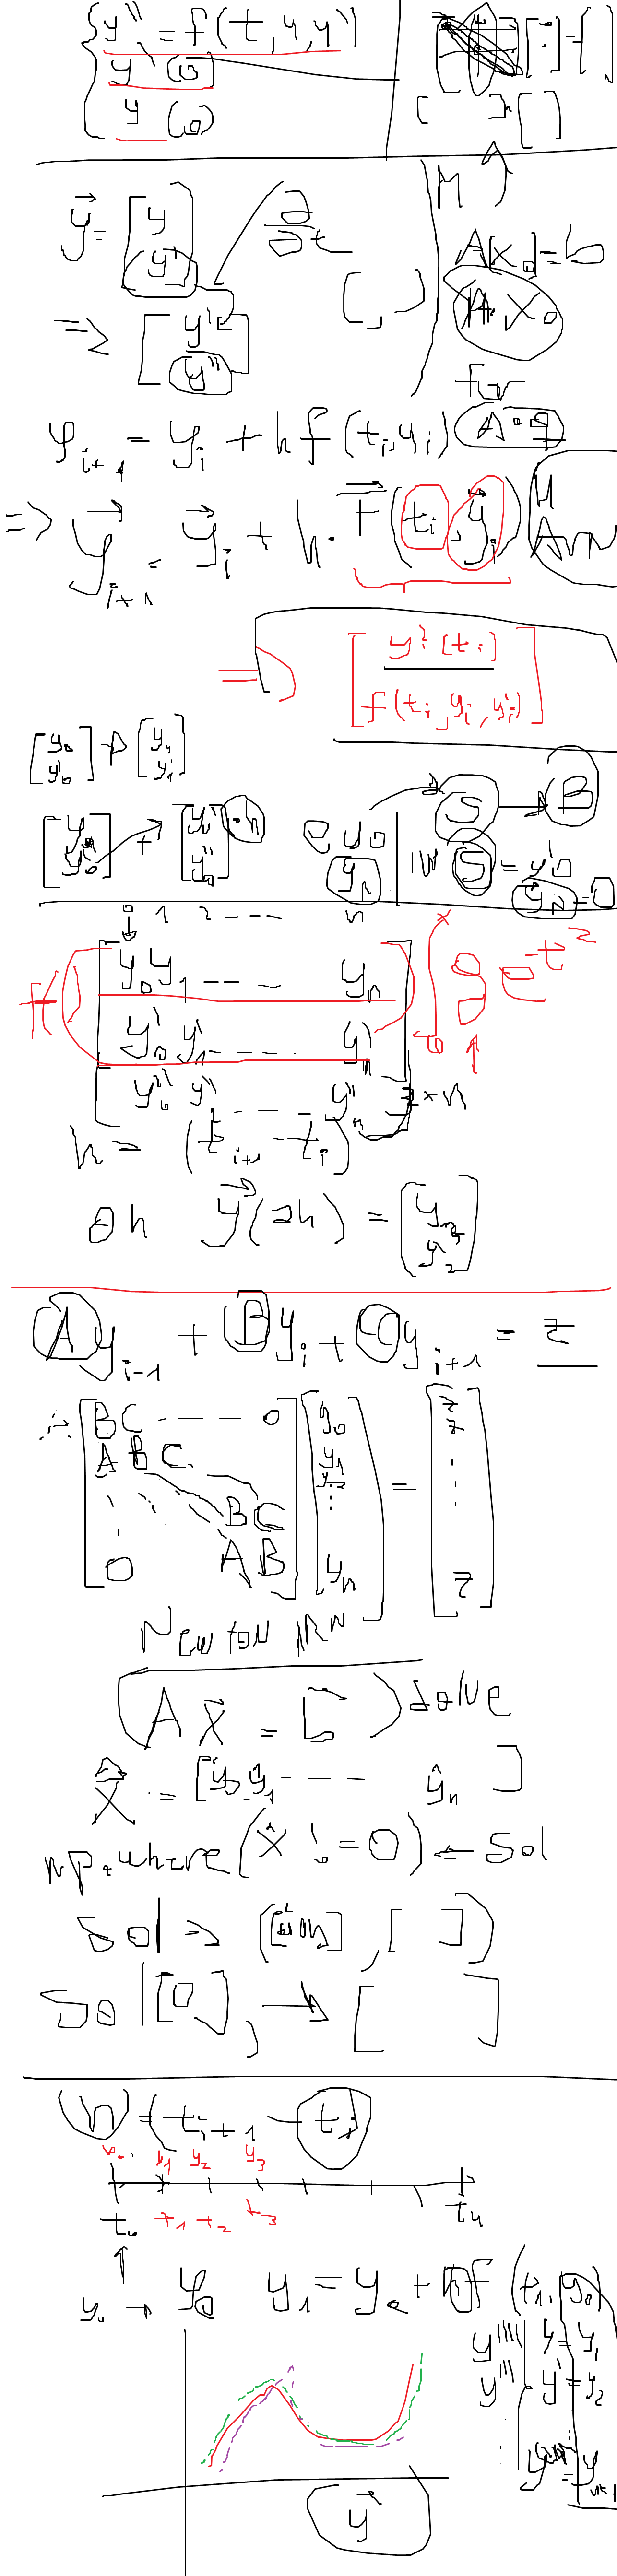 y'' = f(t, y, y')
y'(0)
y(0)
y⃗ = [y
y']
∂/∂t
=> [y'
y'']
( , )
M
A[x₀] = b
A·x₀
for
y_{i+1} = y_i + h f(t_i, y_i)
A·q
=> y⃗_{i+1} = y⃗_i + h · F⃗(t_i, y⃗_i)
=> [y'_i(t_i)
f(t_i, y_i, y'_i)]
[y₀
y'₀] → [y₁
y'₁]
[y₀
y'₀] + [y'₀
y''₀] · h
y₀
y_n
S → B
S = y'₀
y_n = 0
0 1 2 --- n
y₀ y₁ --- y_n
y'₀ y'₁ --- y'_n
y''₀ y'' --- y''_n
3×n
f( )
∫₀ˣ g e^{-t²}
h = (t_{i+1} - t_i)
y⃗(2h) = [y₂
y'₂]
A y_{i-1} + B y_i + C y_{i+1} = z
[B C --- 0] [y₀] = [z]
A B C y₁ z
y₂
B C
0 A B y_n z
Newton ℝᴺ
(A x⃗ = b) solve
x̂ = [ŷ₀ ŷ₁ --- ŷ_n]
np.where(x̂ != 0) ← sol
sol => ([ ], [ ])
sol[0], → [ ]
h = (t_{i+1} - t_i)
y₀ y₁ y₂ y₃
t₀ t₁ t₂ t₃ t₄
y₀ → y₀ y₁ = y₀ + h f(t₁, y₀)
y'''' y = y₁
y''' y' = y₂
y⃗